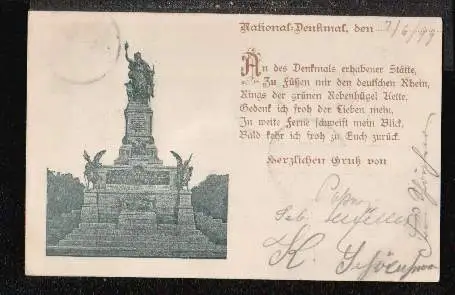 National-Denkmal, den 2/6/99
An des Denkmals erhabener Stätte,
Zu Füßen mir den deutschen Rhein,
Rings der grünen Rebenhügel Kette,
Gedenk ich froh der Lieben mein,
In weite Ferne schweift mein Blick,
Bald kehr ich froh zu Euch zurück.
Herzlichen Gruß von
K.